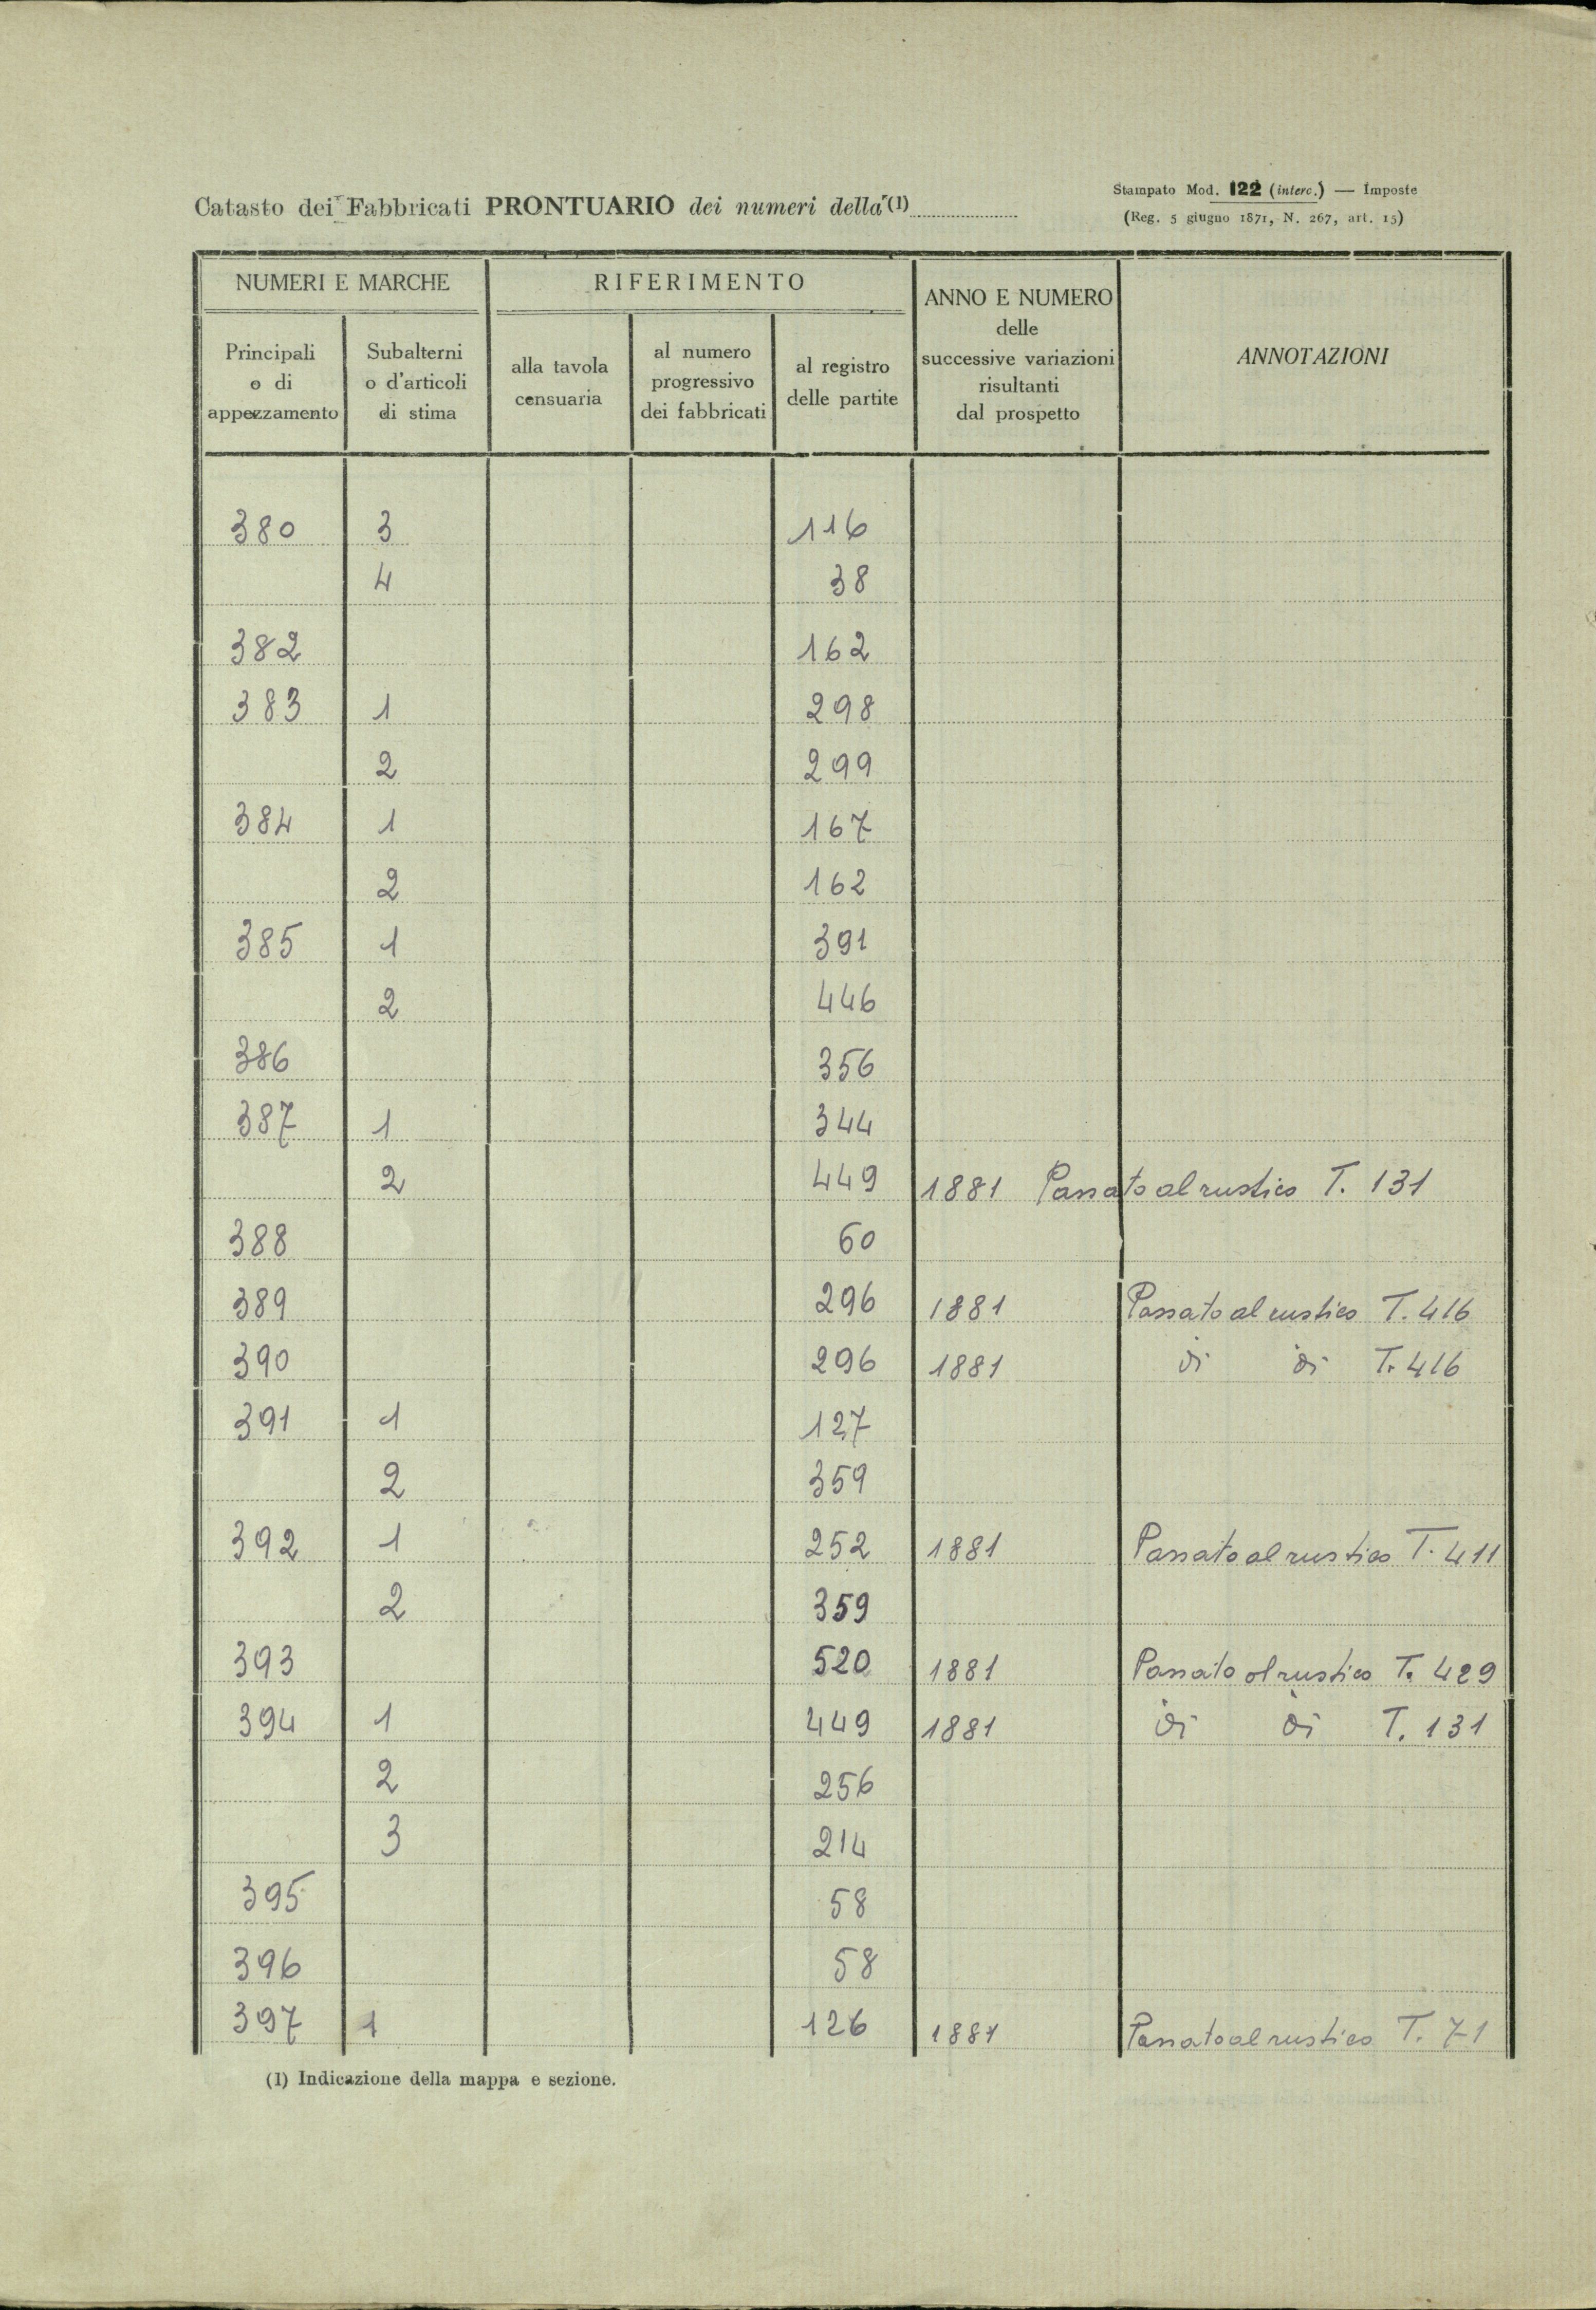 Catasto dei Fabbricati PRONTUARIO dei numeri della (1)
Stampato Mod. 122 (interc.) — Imposte
(Reg. 5 giugno 1871, N. 267, art. 15)
NUMERI E MARCHE
RIFERIMENTO
ANNO E NUMERO
delle
successive variazioni
risultanti
dal prospetto
ANNOTAZIONI
Principali
o di
appezzamento
Subalterni
o d'articoli
di stima
alla tavola
censuaria
al numero
progressivo
dei fabbricati
al registro
delle partite
380 3 116
4 38
382 162
383 1 298
2 299
384 1 167
2 162
385 1 391
2 446
386 356
387 1 344
2 449 1881 Passato al rustico T. 131
388 60
389 296 1881 Passato al rustico T. 416
390 296 1881 di di T. 416
391 1 127
2 359
392 1 252 1881 Passato al rustico T. 411
2 359
393 520 1881 Passato al rustico T. 429
394 1 449 1881 di di T. 131
2 256
3 214
395 58
396 58
397 1 126 1881 Passato al rustico T. 71
(1) Indicazione della mappa e sezione.